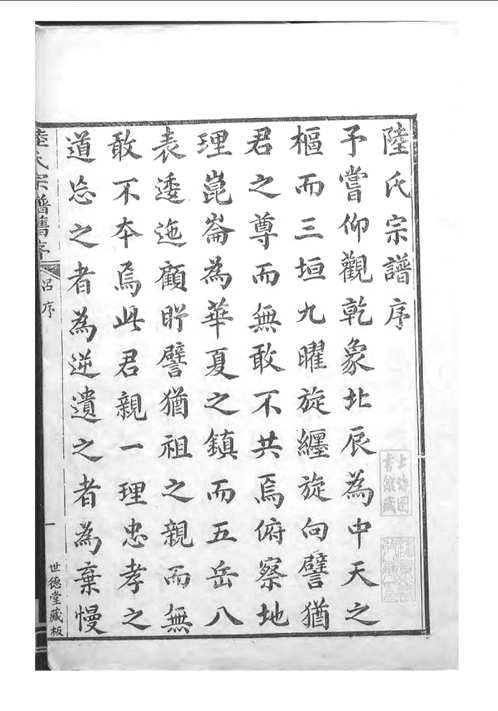 陸氏宗譜序
予嘗仰觀乾象北辰為中天之
樞而三垣九曜旋纏旋向譬猶
君之尊而無敢不共焉俯察地
理崑崙為華夏之鎮而五岳八
表逶迤顧盻譬猶祖之親而無
敢不夲焉此君親一理忠孝之
道忘之者為逆遺之者為棄慢
陸氏宗譜舊序
呂序
世德堂藏板